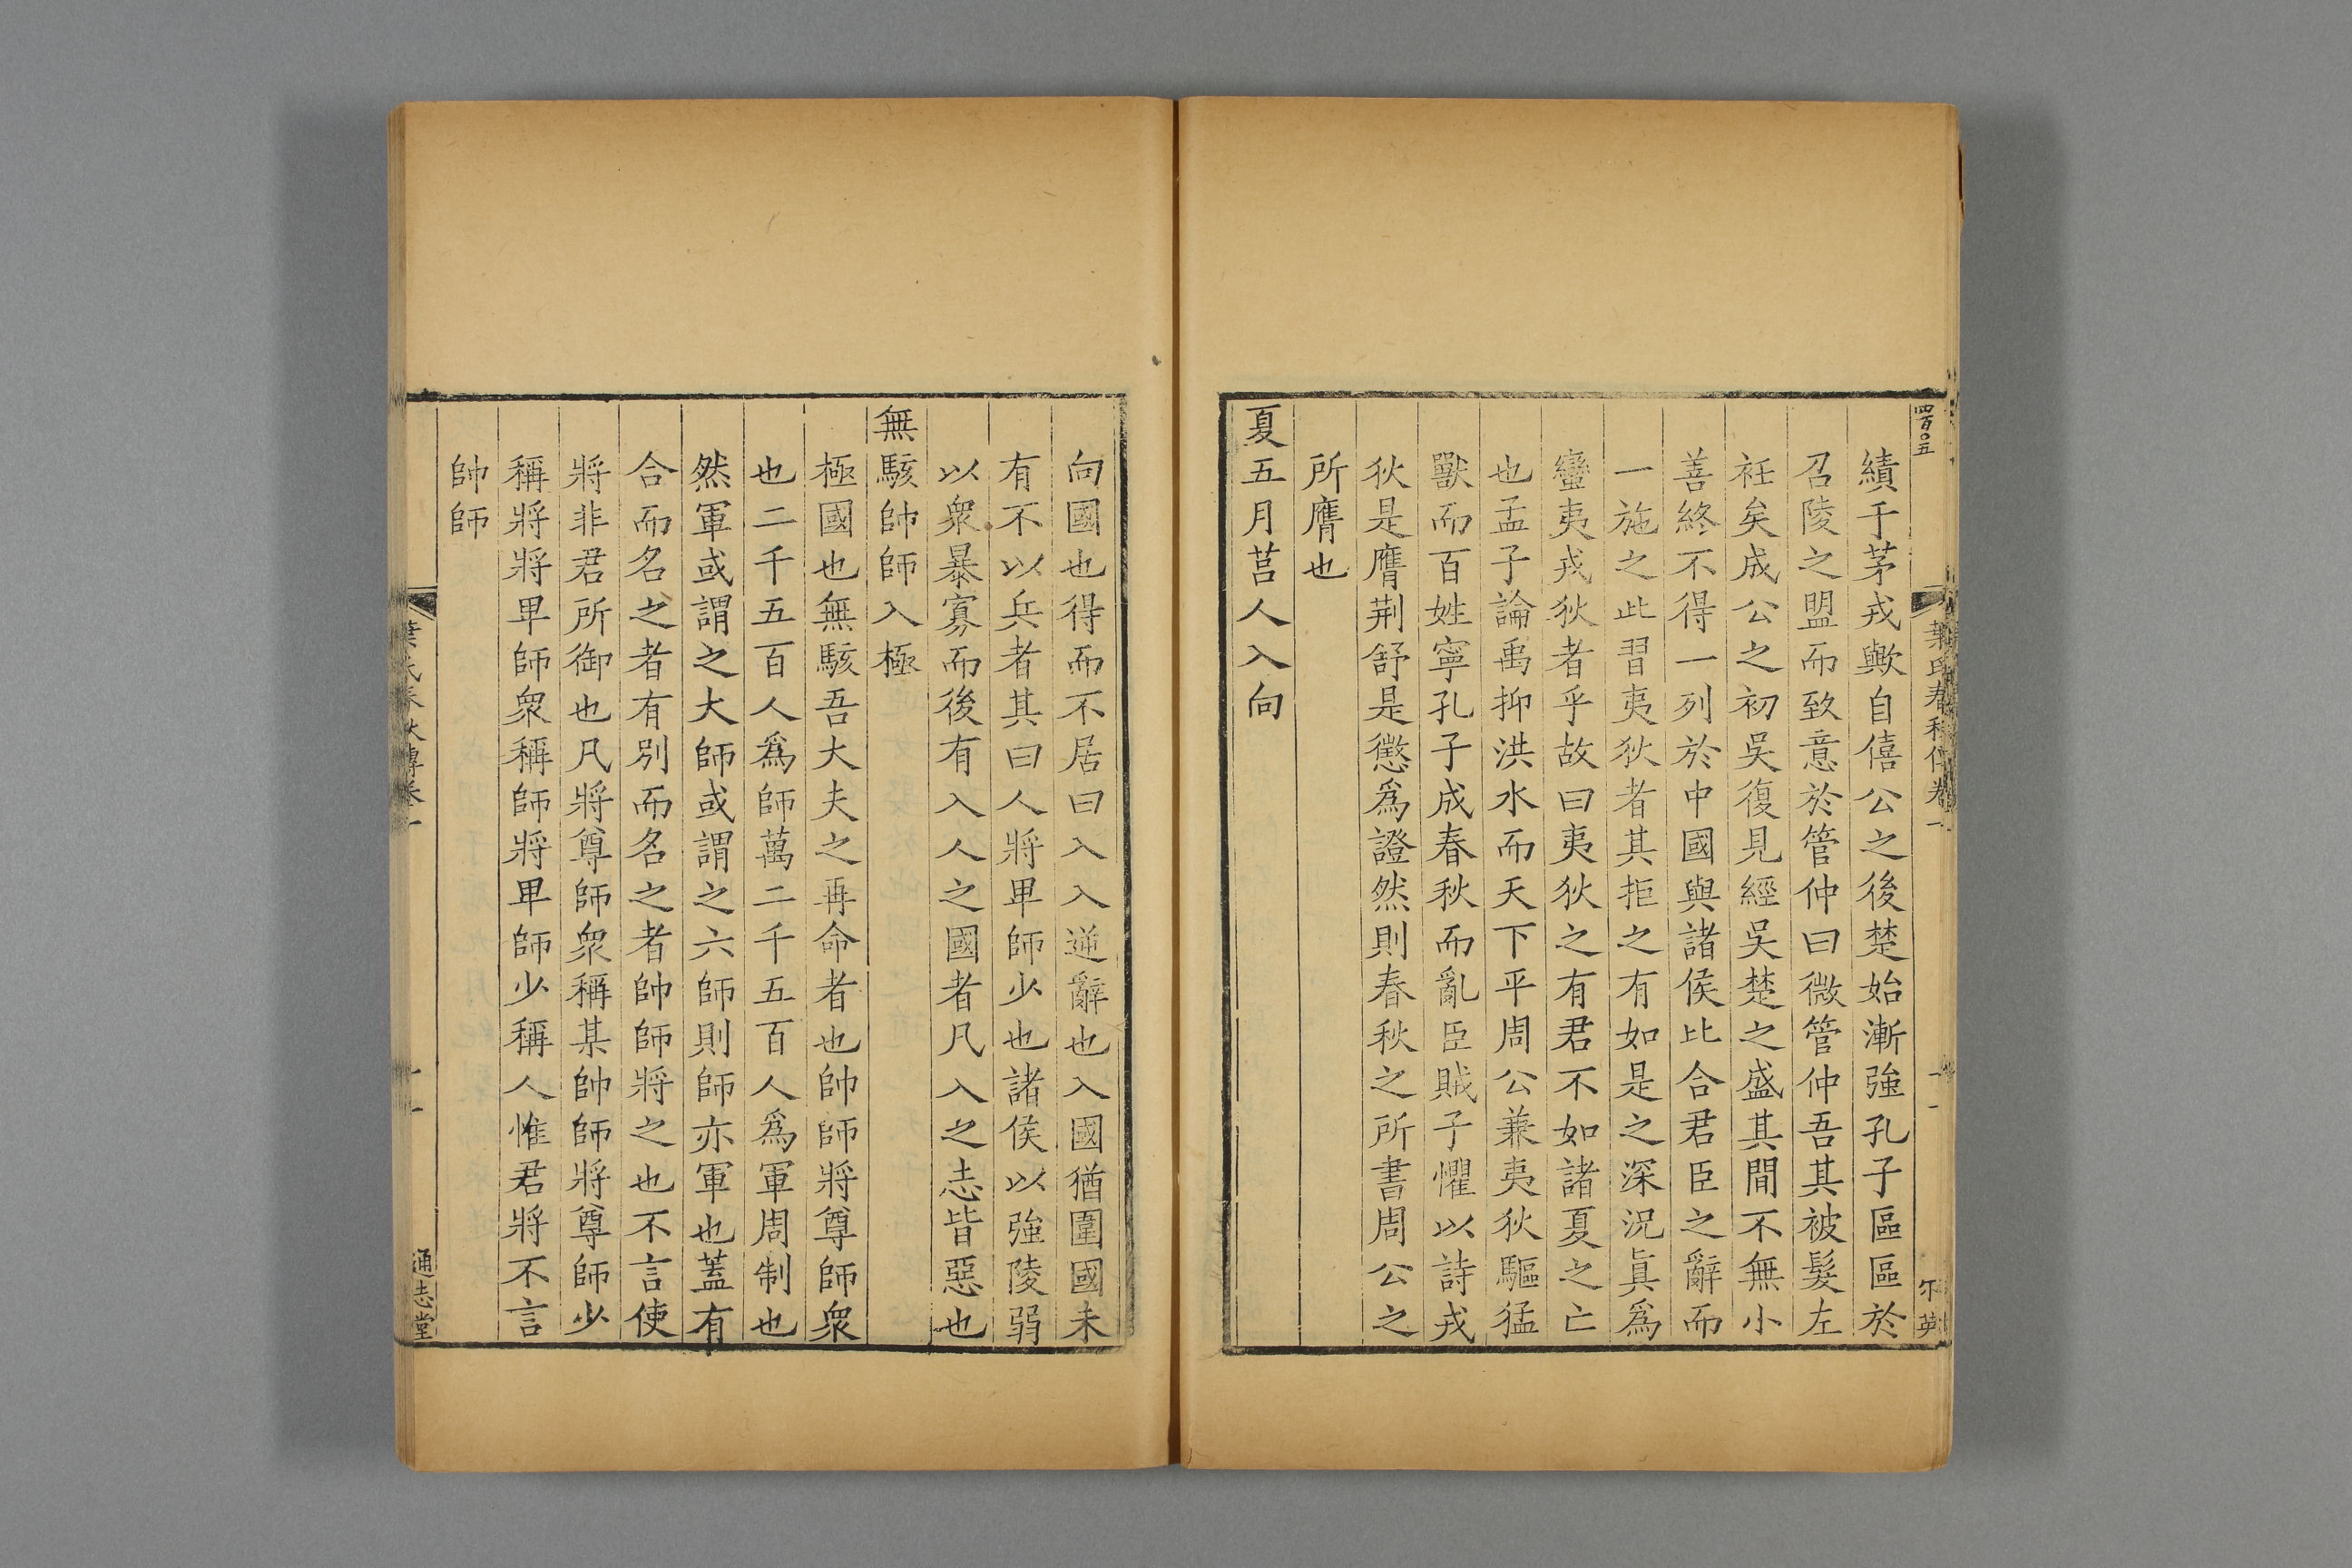 四百○五
績于茅戎歟自僖公之後楚始漸強孔子區區於
召陵之盟而致意於管仲曰微管仲吾其被髮左
衽矣成公之初吳復見經吳楚之盛其間不無小
善終不得一列於中國與諸侯比合君臣之辭而
一施之此習夷狄者其拒之有如是之深況眞爲
蠻夷戎狄者乎故曰夷狄之有君不如諸夏之亡
也孟子論禹抑洪水而天下平周公兼夷狄驅猛
獸而百姓寧孔子成春秋而亂臣賊子懼以詩戎
狄是膺荆舒是懲爲證然則春秋之所書周公之
所膺也
夏五月莒人入向
向國也得而不居曰入入逆辭也入國猶圍國未
有不以兵者其曰人將卑師少也諸侯以強陵弱
以衆暴寡而後有入人之國者凡入之志皆惡也
無駭帥師入極
極國也無駭吾大夫之再命者也帥師將尊師衆
也二千五百人爲師萬二千五百人爲軍周制也
然軍或謂之大師或謂之六師則師亦軍也蓋有
合而名之者有別而名之者帥師將之也不言使
將非君所御也凡將尊師衆稱某帥師將尊師少
稱將將卑師衆稱師將卑師少稱人惟君將不言
帥師
葉氏春秋傳卷一
十一
通志堂